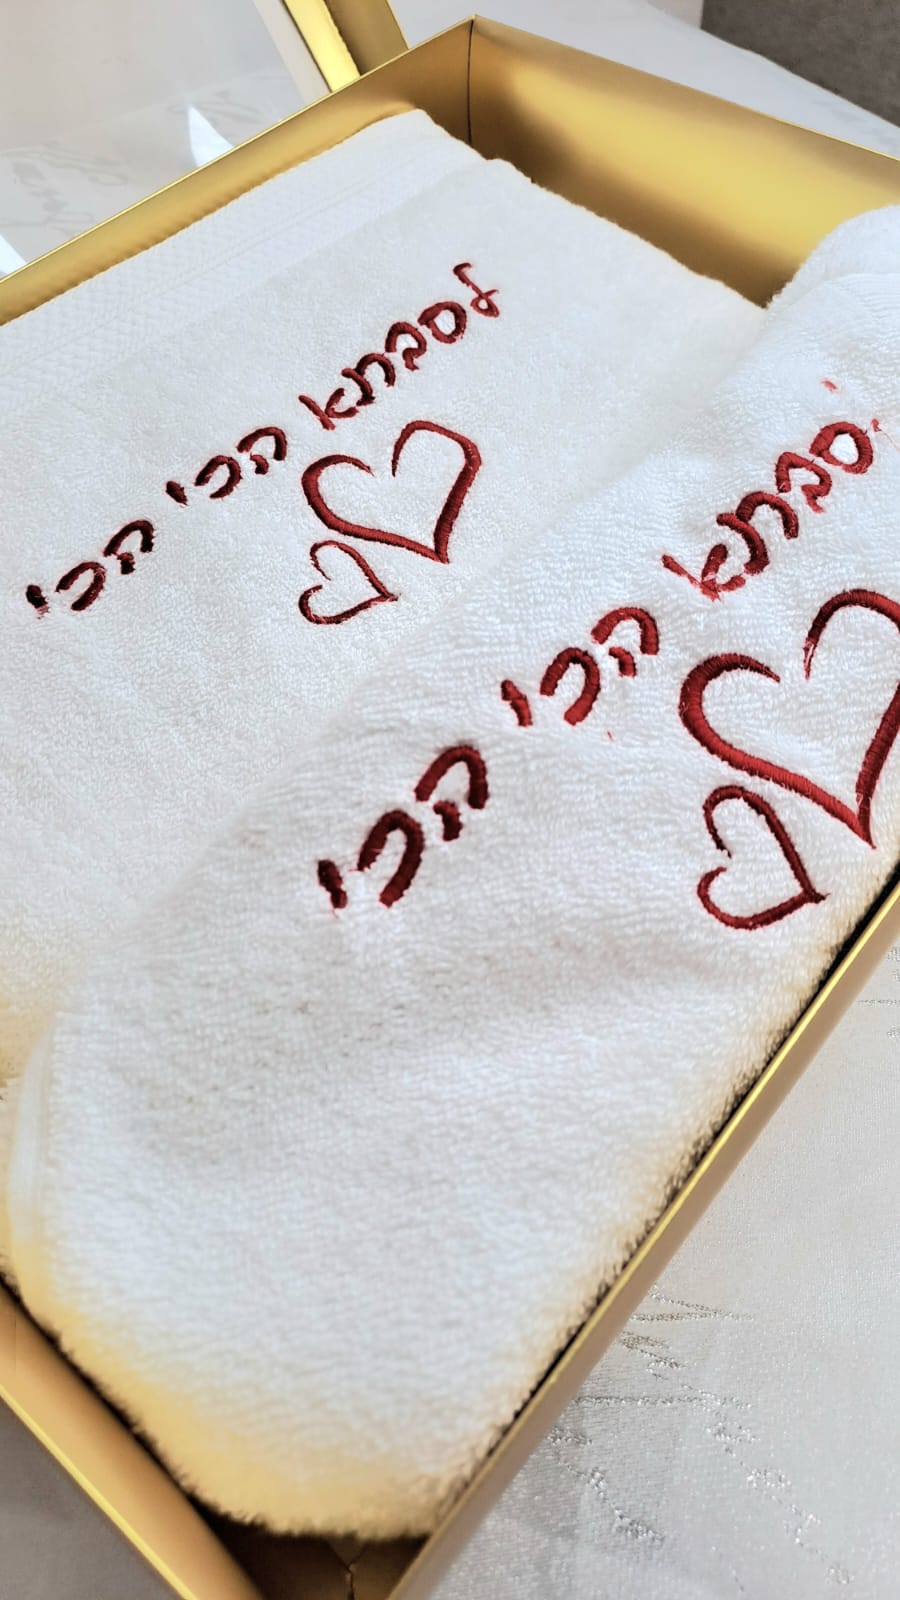 לסבתא הכי הכי
סבתא הכי הכי